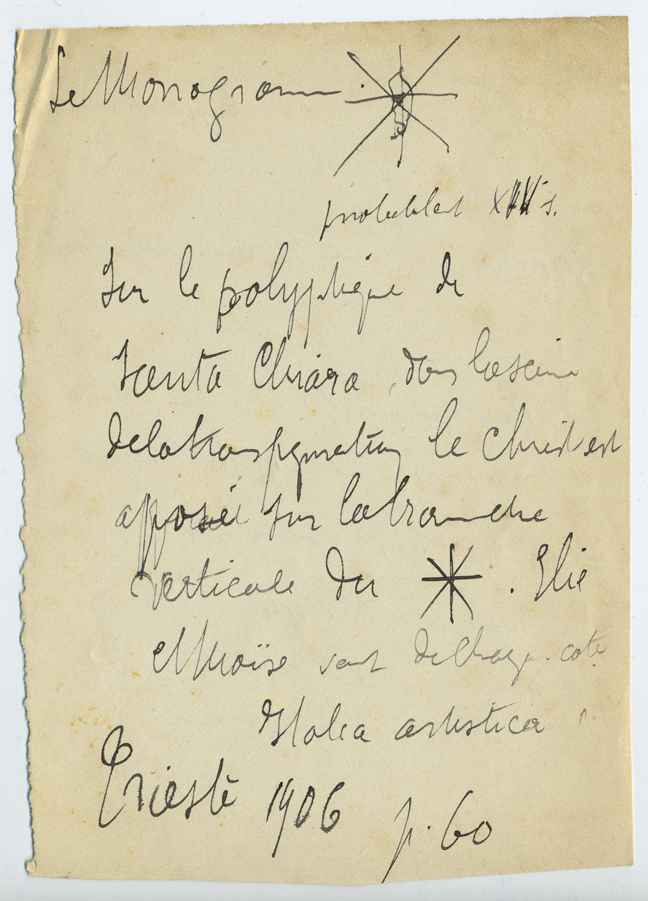 Le Monogramme
probablent XIV s.
Sur le polyptique de
Santa Chiara, dans la scène
de la transfiguration le Christ est
apposé sur la branche
verticale du . Elie
et Moïse sont de chaque côté
Italia artistica
Trieste 1906 p. 60